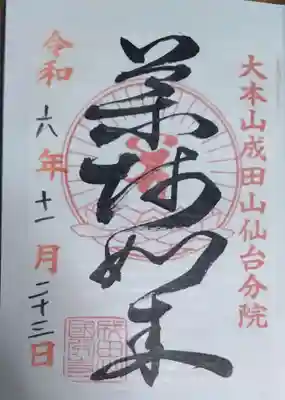 大本山成田山仙台分院
薬師如来
令和六年十一月二十三日